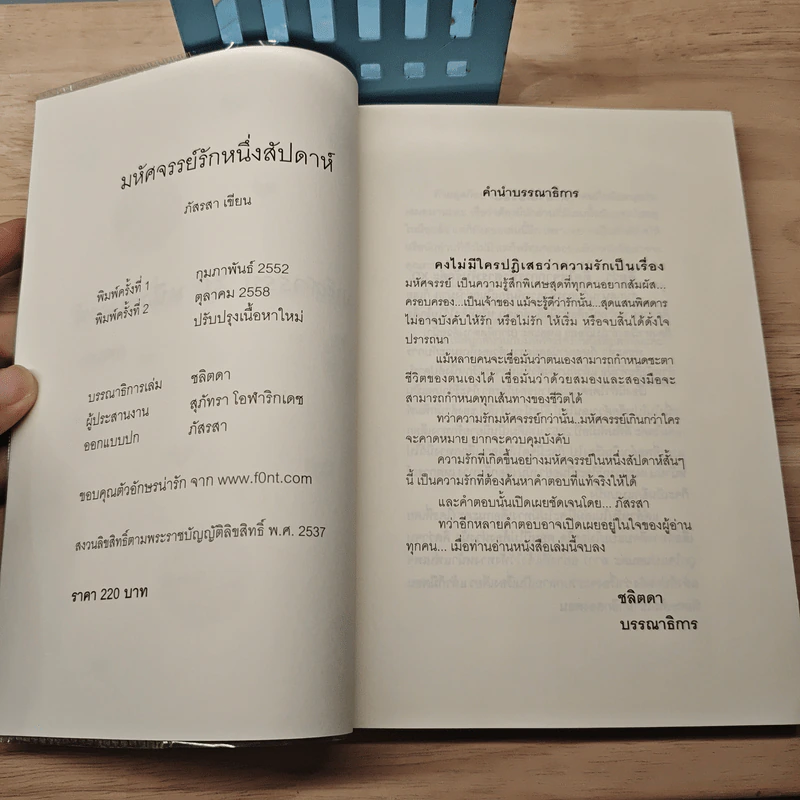 มหัศจรรย์รักหนึ่งสัปดาห์
ภัสรสา เขียน
พิมพ์ครั้งที่ 1 กุมภาพันธ์ 2552
พิมพ์ครั้งที่ 2 ตุลาคม 2558
ปรับปรุงเนื้อหาใหม่
บรรณาธิการเล่ม ชลิตดา
ผู้ประสานงาน สุภัทรา โอฬาริกเดช
ออกแบบปก ภัสรสา
ขอบคุณตัวอักษรน่ารัก จาก www.f0nt.com
สงวนลิขสิทธิ์ตามพระราชบัญญัติลิขสิทธิ์ พ.ศ. 2537
ราคา 220 บาท
คำนำบรรณาธิการ
คงไม่มีใครปฏิเสธว่าความรักเป็นเรื่อง
มหัศจรรย์ เป็นความรู้สึกพิเศษสุดที่ทุกคนอยากสัมผัส...
ครอบครอง...เป็นเจ้าของ แม้จะรู้ดีว่ารักนั้น...สุดแสนพิศดาร
ไม่อาจบังคับให้รัก หรือไม่รัก ให้เริ่ม หรือจบสิ้นได้ดั่งใจ
ปรารถนา
แม้หลายคนจะเชื่อมั่นว่าตนเองสามารถกำหนดชะตา
ชีวิตของตนเองได้ เชื่อมั่นว่าด้วยสมองและสองมือจะ
สามารถกำหนดทุกเส้นทางของชีวิตได้
ทว่าความรักมหัศจรรย์กว่านั้น..มหัศจรรย์เกินกว่าใคร
จะคาดหมาย ยากจะควบคุมบังคับ
ความรักที่เกิดขึ้นอย่างมหัศจรรย์ในหนึ่งสัปดาห์สั้นๆ
นี้ เป็นความรักที่ต้องค้นหาคำตอบที่แท้จริงให้ได้
และคำตอบนั้นเปิดเผยชัดเจนโดย... ภัสรสา
ทว่าอีกหลายคำตอบอาจเปิดเผยอยู่ในใจของผู้อ่าน
ทุกคน... เมื่อท่านอ่านหนังสือเล่มนี้จบลง
ชลิตดา
บรรณาธิการ